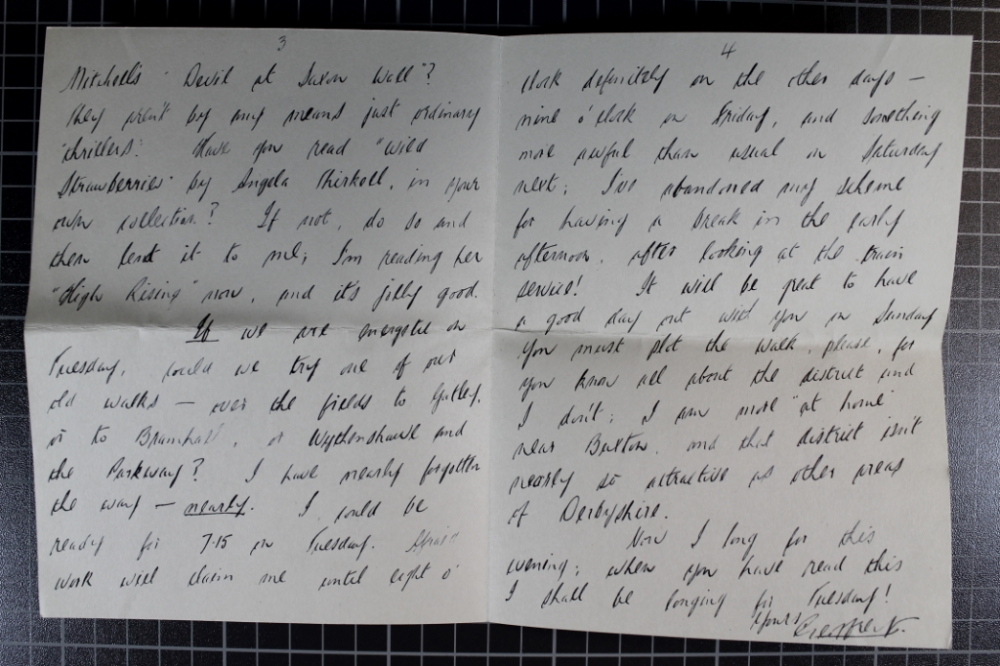 3
Mitchell's "Devil at Saxon Wall"?
They aren't by any means just ordinary
"thrillers". Have you read "Wild
Strawberries" by Angela Thirkell, in your
own collection? If not, do so and
then lend it to me; I'm reading her
"High Rising" now, and it's jolly good.
If we are energetic on
Tuesday, could we try one of our
old walks — over the fields to Gatley,
or to Bramhall, or Wythenshawe and
the Parkway? I have nearly forgotten
the way — nearly. I could be
ready for 7.15 on Tuesday. Afraid
work will claim me until eight o'
4
clock definitely on the other days —
nine o'clock on Friday, and something
more awful than usual on Saturday
next; I've abandoned my scheme
for having a break in the early
afternoon, after looking at the train
service! It will be great to have
a good day out with you on Sunday
You must plot the walk, please, for
you know all about the district and
I don't; I am more "at home"
near Buxton, and that district isn't
nearly so attractive as other areas
of Derbyshire.
Now I long for this
evening; when you have read this
I shall be longing for Tuesday!
Yours